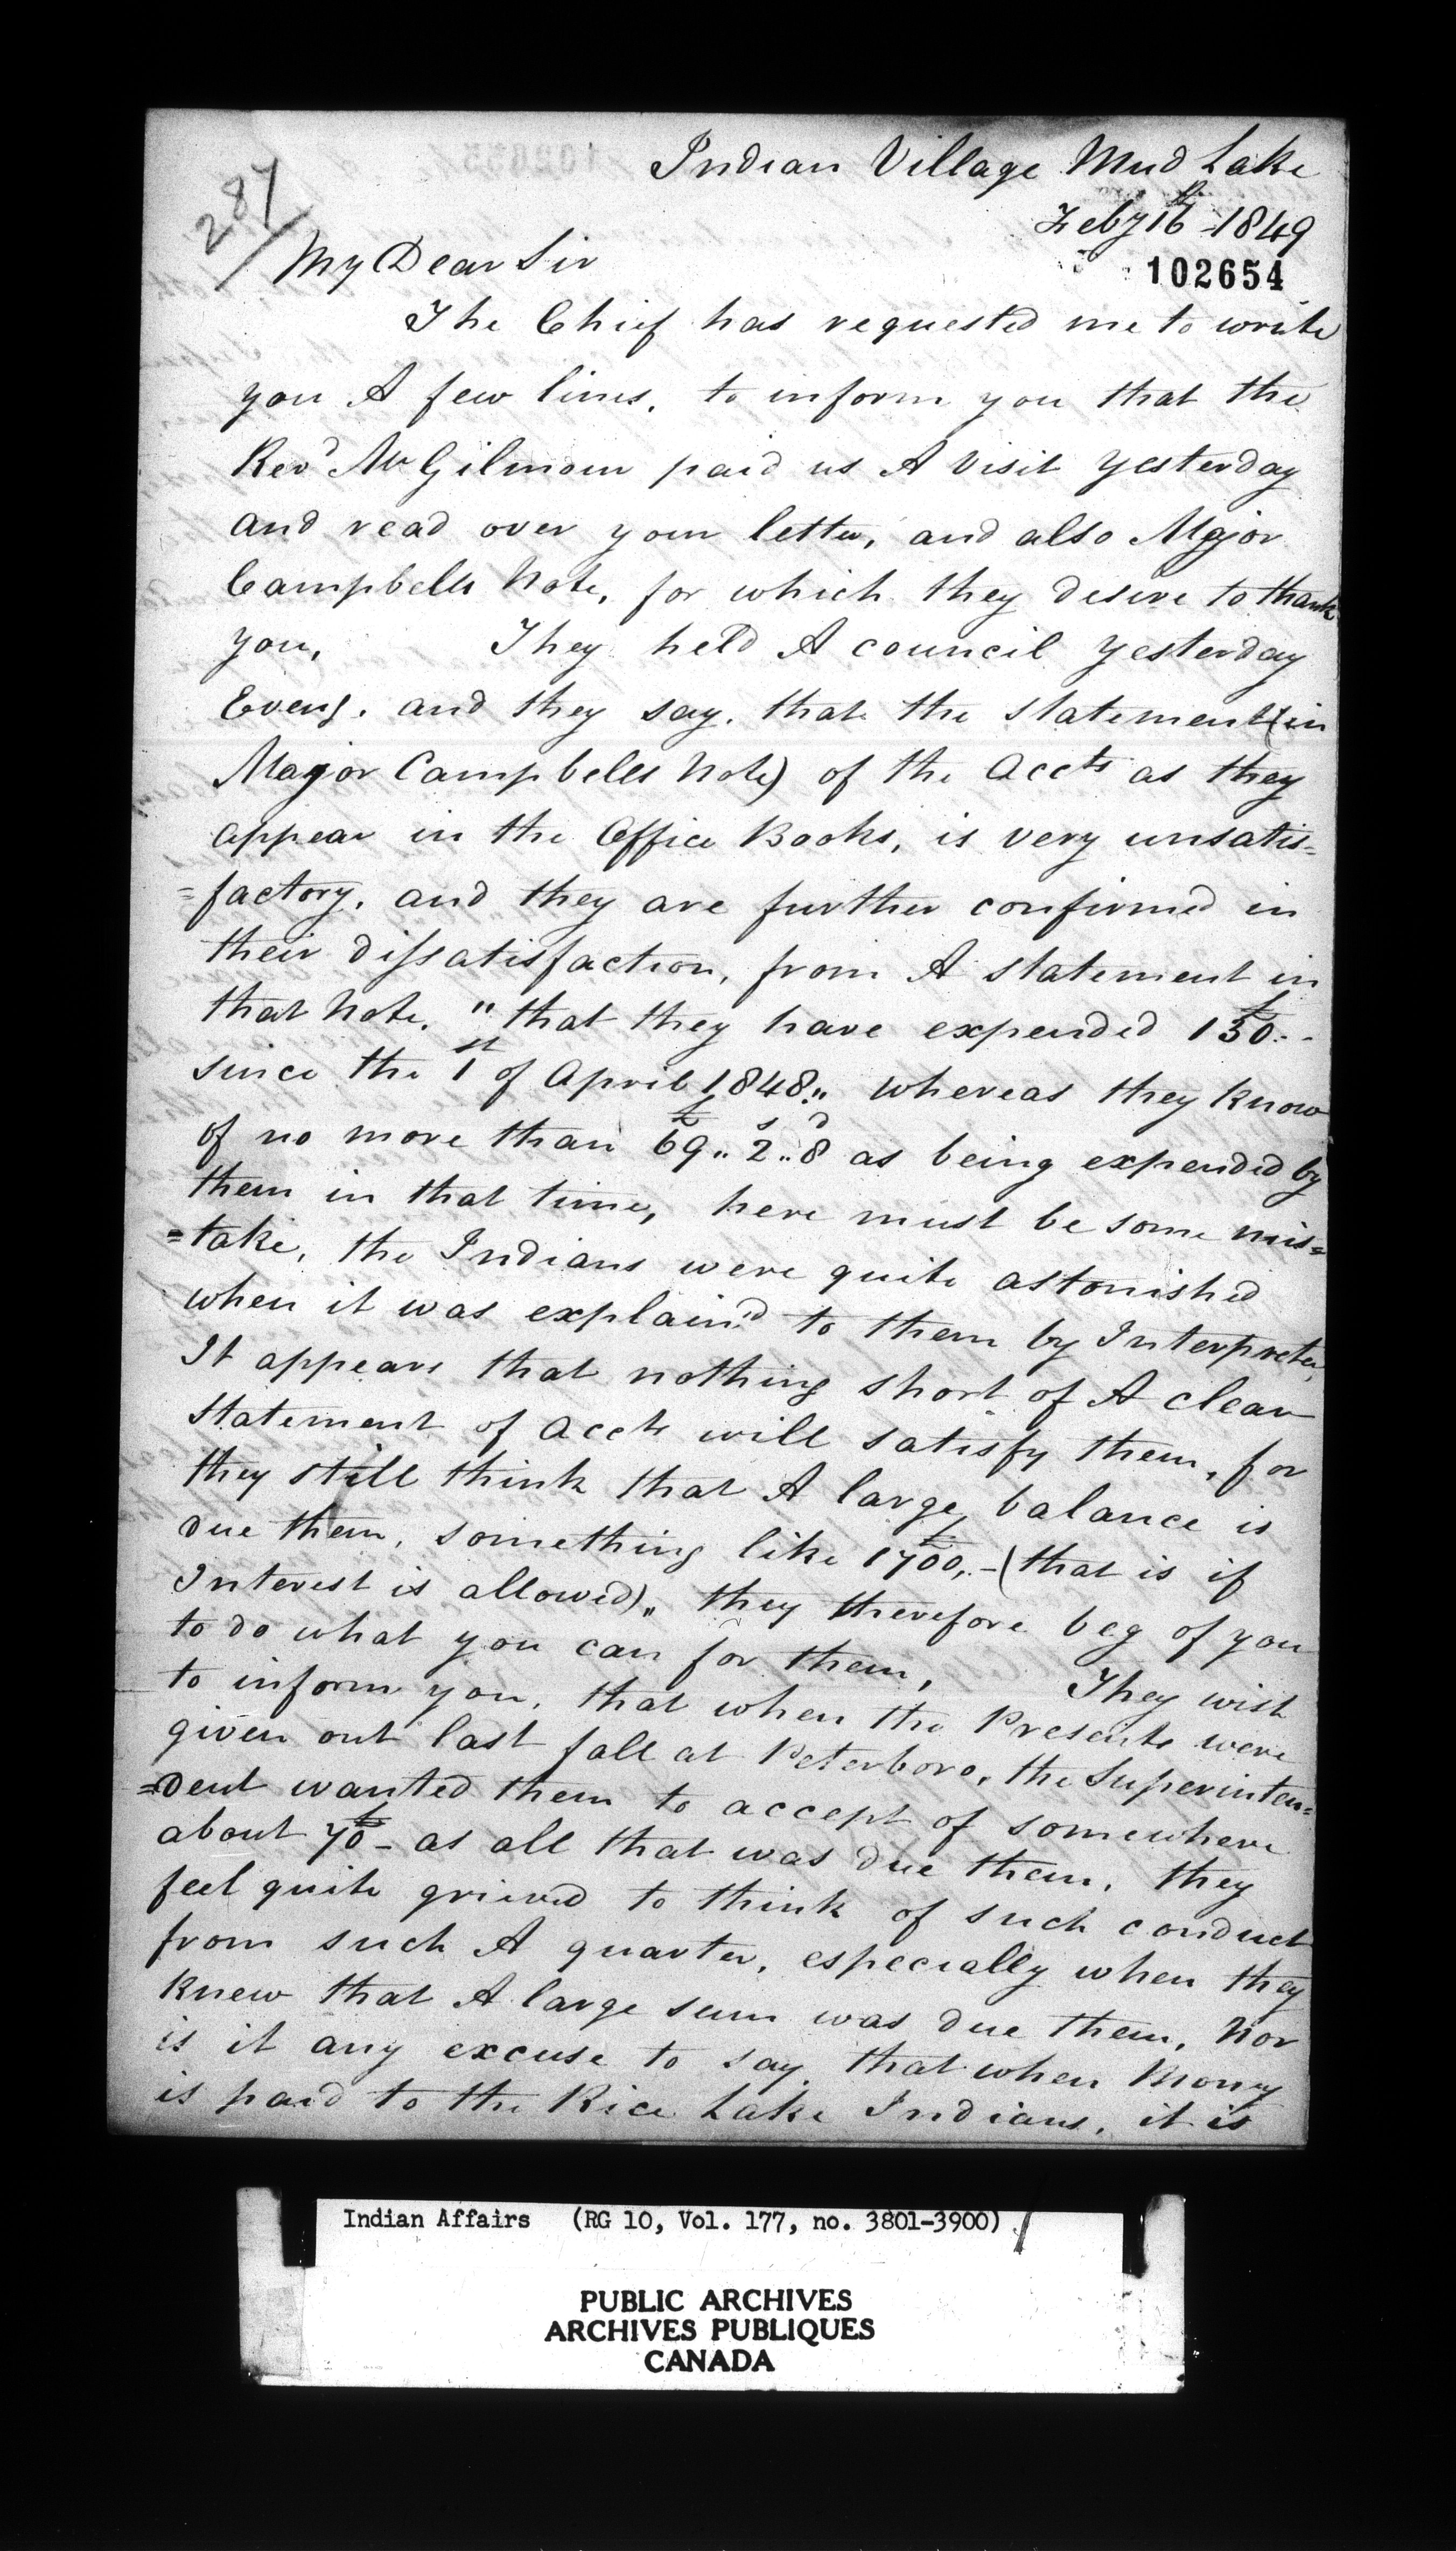 Indian Village Mud Lake
287
Feby 16th 1849
My Dear Sir
102654
The Chief has requested me to write
you A few lines, to inform you that the
Revd Mr Gilmour paid us A Visit yesterday
and read over your letter, and also Major
Campbells Note, for which they desire to thank
you, They held A council yesterday
Eveng. and they say, that the statement (in
Major Campbells Note) of the Accts as they
appear in the Office Books, is very unsatis=
=factory, and they are further confirmed in
their dissatisfaction, from A statement in
that Note, "that they have expended £130..
since the 1st of April 1848" whereas they know
of no more than £69.. 2s.. 8d as being expended by
them in that time, here must be some mis=
=take, the Indians were quite astonished
when it was explain'd to them by Interpreter,
It appears that nothing short of A clear
statement of Accts will satisfy them, for
they still think that A large balance is
due them, something like £1700,- (that is if
Interest is allowed), they therefore beg of you
to do what you can for them, They wish
to inform you, that when the Presents were
given out last fall at Peterboro, the Superinten=
=dent wanted them to accept of somewhere
about £70- as all that was due them, they
feel quite grieved to think of such conduct
from such A quarter, especially when they
knew that A large sum was due them, Nor
is it any excuse to say, that when Money
is paid to the Rice Lake Indians, it is
Indian Affairs (RG 10, Vol. 177, no. 3801-3900)
PUBLIC ARCHIVES
ARCHIVES PUBLIQUES
CANADA